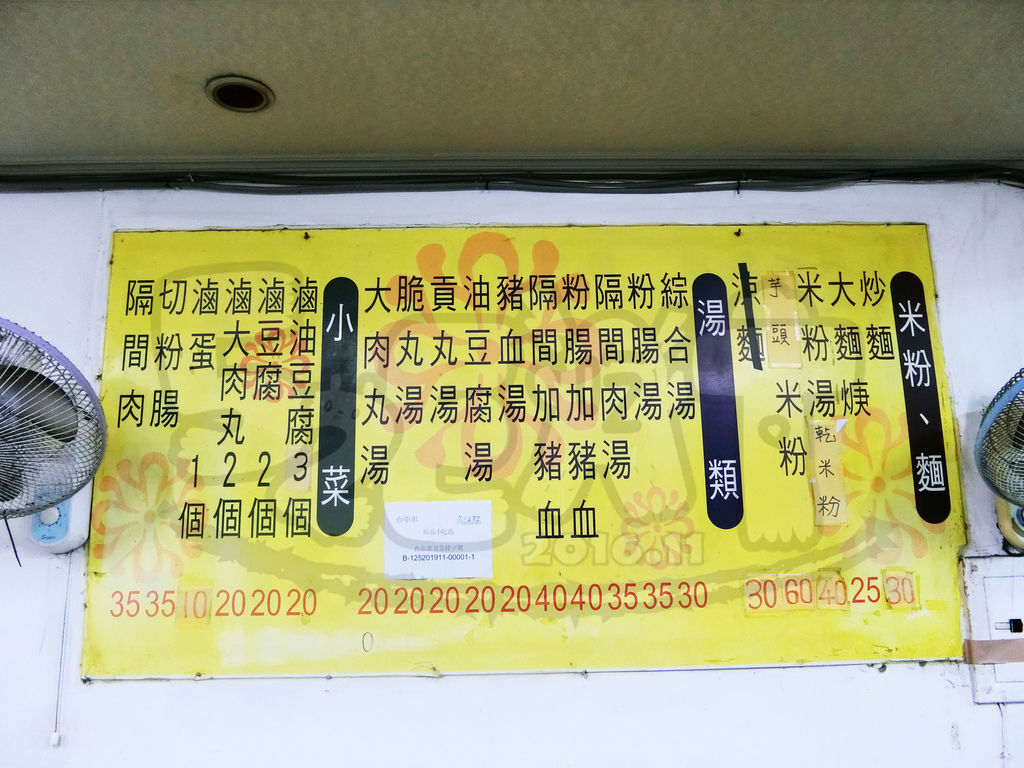 米粉、麵
炒麵
大麵焿
米粉湯
乾米粉
芋頭米粉
涼麵
30
25
40
60
30
湯類
綜合湯
粉腸湯
隔間肉湯
粉腸加豬血
隔間加豬血
豬血湯
油豆腐湯
貢丸湯
脆丸湯
大肉丸湯
30
35
35
40
40
20
20
20
20
20
小菜
滷油豆腐3個
滷豆腐2個
滷大肉丸2個
滷蛋1個
切粉腸
隔間肉
20
20
20
10
35
35
台中市
食品業者登錄字號
B-125201911-00001-1
2016.11